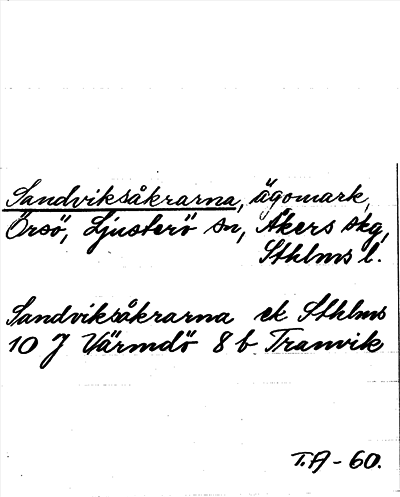 Sandviksåkrarna, ägomark,
Örsö, Ljusterö sn, Åkers skg,
Sthlms l.
Sandviksåkrarna ek Sthlms
10 J Värmdö 8 b Tranvik
T.A-60.